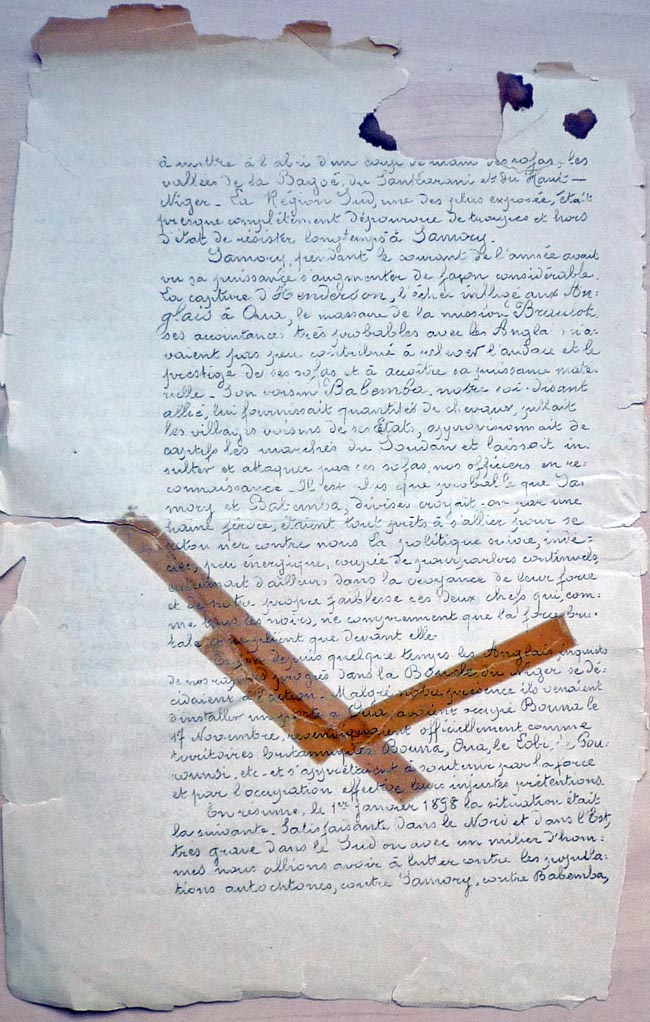 à mettre à l'abri d'un coup de main des sofas, les
vallées de la Bagoë, du Sankarani et du Haut-
Niger - La Région Sud, une des plus exposée, était
presque complètement dépourvue de troupes et hors
d'Etat de résister longtemps à Samory.
Samory, pendant le courant de l'année avait
vu sa puissance s'augmenter de façon considérable.
La capture d'Henderson, l'échec infligé aux An-
glais à Oua, le massacre de la mission Braulot,
ses accointances très probables avec les Anglais n'a-
vaient pas peu contribué à relever l'audace et le
prestige de ses sofas et à accoitre sa puissance maté-
rielle - Son voisin Babemba, notre soi-disant
allié, lui fournissait quantités de chevaux, pillait
les villages voisins de ses Etats, approvisionnait de
captifs les marchés du Soudan et laissait in-
sulter et attaquer par ses sofas, nos officiers en re-
connaissance - Il est plus que probable que Sa-
mory et Babemba, divisés croyait-on par une
haine féroce, étaient tout prêts à s'allier pour se
retourner contre nous La politique suivie, indé-
cise, peu énergique, coupée de pourparlers continuels,
entretenait d'ailleurs dans la croyance de leur force
et de notre propre faiblesse ces deux chefs qui, com-
me tous les noirs, ne comprennent que la force bru-
tale et ne plient que devant elle.
Enfin depuis quelque temps les Anglais, inquiets
de nos rapides progrès dans la Boucle du Niger se dé-
cidaient à l'action - Malgré notre présence ils venaient
d'installer un poste à Oua, avaient occupé Bouna le
17 Novembre, revendiquaient officiellement comme
territoires britanniques Bouna, Oua, le Lobi, le Gou-
rounsi, etc - et s'apprêtaient à soutenir par la force
et par l'occupation effective leurs injustes prétentions.
En résumé, le 1er Janvier 1898 la situation était
la suivante - Satisfaisante dans le Nord et dans l'Est,
très grave dans le Sud où avec un millier d'hom-
mes nous allions avoir à lutter contre les popula-
tions autochtones, contre Samory, contre Babemba,